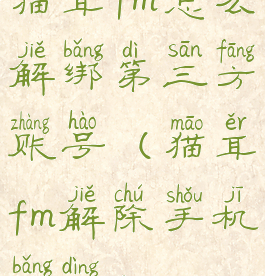 猫耳fm怎么
jiě bǎng dì sān fāng
解绑第三方
zhàng hào māo ěr
账号（猫耳
jiě chú shǒu jī
fm解除手机
bǎng dìng